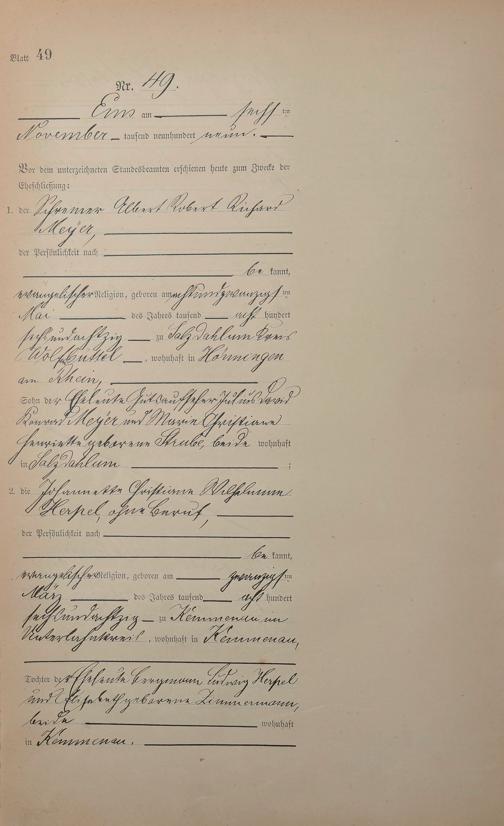 Blatt 49
Nr. 49.
Ems am sechsten
November tausend neunhundert neun.
Vor dem unterzeichneten Standesbeamten erschienen heute zum Zwecke der
Eheschließung:
1. der Schreiner Albert Robert Richard
Meyer,
der Persönlichkeit nach
be kannt,
evangelischer Religion, geboren am achtundzwanzigsten
Mai des Jahres tausend acht hundert
sechsundachtzig zu Salzdahlum Kreis
Wolfenbüttel, wohnhaft in Hönningen
am Rhein,
Sohn der Eheleute Gutsaufseher Julius David
Konrad Meyer und Marie Christiane
Henriette geborene Strube, beide wohnhaft
in Salzdahlum ;
2. die Johannette Christiane Wilhelmine
Herpel, ohne Beruf,
der Persönlichkeit nach
be kannt,
evangelischer Religion, geboren am zwanzigsten
März des Jahres tausend acht hundert
sechsundachtzig zu Kemmenau im
Unterlahnkreis, wohnhaft in Kemmenau,
Tochter der Eheleute Bergmann Ludwig Herpel
und Elisabeth geborene Zimmermann,
beide wohnhaft
in Kemmenau.